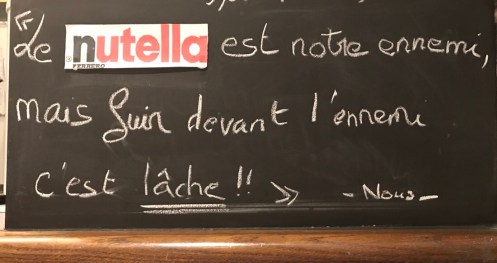 « Le nutella est notre ennemi,
FERRERO
mais fuir devant l'ennemi
c'est lâche !! » - Nous -